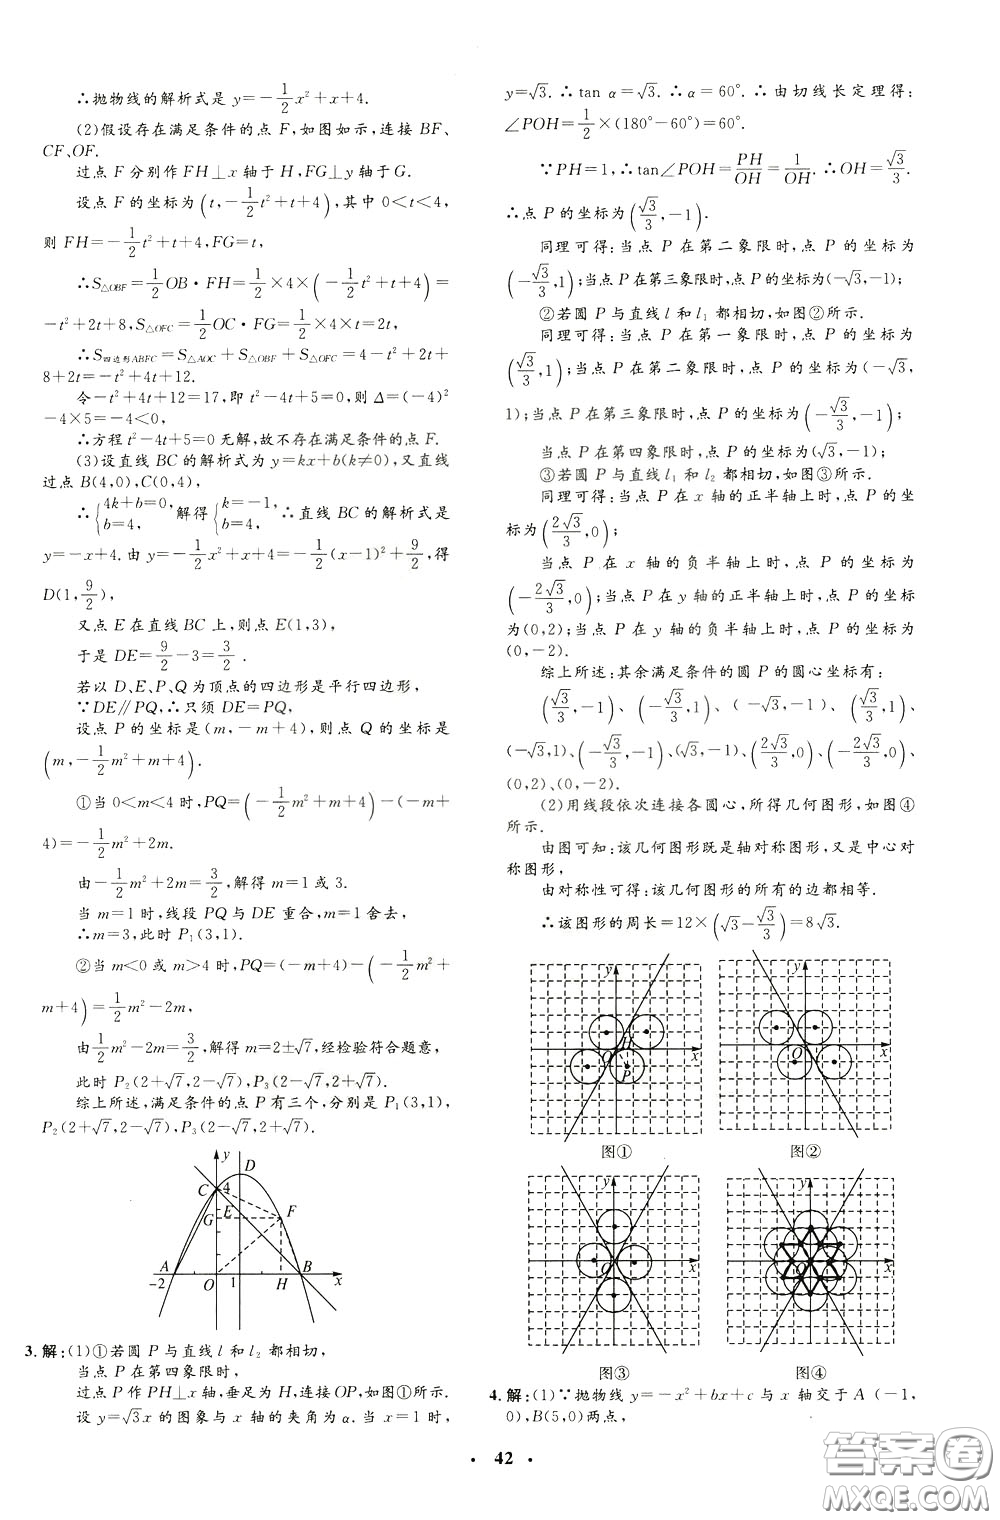 ∴抛物线的解析式是 y=-1/2x²+x+4.
(2)假设存在满足条件的点 F,如图如示,连接 BF、
CF、OF.
过点 F 分别作 FH⊥x 轴于 H,FG⊥y 轴于 G.
设点 F 的坐标为(t,-1/2t²+t+4),其中 0<t<4,
则 FH=-1/2t²+t+4,FG=t,
∴S△OBF=1/2OB·FH=1/2×4×(-1/2t²+t+4)=
-t²+2t+8,S△OFC=1/2OC·FG=1/2×4×t=2t,
∴S四边形ABFC=S△AOC+S△OBF+S△OFC=4-t²+2t+
8+2t=-t²+4t+12.
令-t²+4t+12=17,即 t²-4t+5=0,则 Δ=(-4)²
-4×5=-4<0,
∴方程 t²-4t+5=0 无解,故不存在满足条件的点 F.
(3)设直线 BC 的解析式为 y=kx+b(k≠0),又直线
过点 B(4,0),C(0,4),
∴{4k+b=0, b=4, 解得{k=-1, b=4, ∴直线 BC 的解析式是
y=-x+4.由 y=-1/2x²+x+4=-1/2(x-1)²+9/2,得
D(1,9/2),
又点 E 在直线 BC 上,则点 E(1,3),
于是 DE=9/2-3=3/2.
若以 D、E、P、Q 为顶点的四边形是平行四边形,
∵DE∥PQ,∴只须 DE=PQ,
设点 P 的坐标是(m,-m+4),则点 Q 的坐标是
(m,-1/2m²+m+4).
①当 0<m<4 时,PQ=(-1/2m²+m+4)-(-m+
4)=-1/2m²+2m.
由-1/2m²+2m=3/2,解得 m=1 或 3.
当 m=1 时,线段 PQ 与 DE 重合,m=1 舍去,
∴m=3,此时 P₁(3,1).
②当 m<0 或 m>4 时,PQ=(-m+4)-(-1/2m²+
m+4)=1/2m²-2m,
由1/2m²-2m=3/2,解得 m=2±√7,经检验符合题意,
此时 P₂(2+√7,2-√7),P₃(2-√7,2+√7).
综上所述,满足条件的点 P 有三个,分别是 P₁(3,1),
P₂(2+√7,2-√7),P₃(2-√7,2+√7).
y
D
C 4
G E F
A B
-2 O 1 H x
3.解:(1)①若圆 P 与直线 l 和 l₂ 都相切,
当点 P 在第四象限时,
过点 P 作 PH⊥x 轴,垂足为 H,连接OP,如图①所示.
设 y=√3x 的图象与 x 轴的夹角为 α.当 x=1 时,
y=√3.∴tan α=√3.∴α=60°.∴由切线长定理得:
∠POH=1/2×(180°-60°)=60°.
∵PH=1,∴tan∠POH=PH/OH=1/OH.∴OH=√3/3.
∴点 P 的坐标为(√3/3,-1).
同理可得:当点 P 在第二象限时,点 P 的坐标为
(-√3/3,1);当点 P 在第三象限时,点 P 的坐标为(-√3,-1);
②若圆 P 与直线 l 和 l₁ 都相切,如图②所示.
同理可得:当点 P 在第一象限时,点 P 的坐标为
(√3/3,1);当点 P 在第二象限时,点 P 的坐标为(-√3,
1);当点 P 在第三象限时,点 P 的坐标为(-√3/3,-1);
当点 P 在第四象限时,点 P 的坐标为(√3,-1).
③若圆 P 与直线 l₁ 和 l₂ 都相切,如图③所示.
同理可得:当点 P 在 x 轴的正半轴上时,点 P 的坐
标为(2√3/3,0);
当点 P 在 x 轴的负半轴上时,点 P 的坐标为
(-2√3/3,0);当点 P 在 y 轴的正半轴上时,点 P 的坐标
为(0,2);当点 P 在 y 轴的负半轴上时,点 P 的坐标为
(0,-2).
综上所述:其余满足条件的圆 P 的圆心坐标有:
(√3/3,-1)、(-√3/3,1)、(-√3,-1)、(√3/3,1)、
(-√3,1)、(-√3/3,-1)、(√3,-1)、(2√3/3,0)、(-2√3/3,0)、
(0,2)、(0,-2).
(2)用线段依次连接各圆心,所得几何图形,如图④
所示.
由图可知:该几何图形既是轴对称图形,又是中心对
称图形,
由对称性可得:该几何图形的所有的边都相等.
∴该图形的周长=12×(√3-√3/3)=8√3.
y
O H x
P
图①
y
O x
图②
y
O x
图③
y
O x
图④
4.解:(1)∵抛物线 y=-x²+bx+c 与 x 轴交于 A(-1,
0),B(5,0)两点,
· 42 ·
答案圈
MXQE.COM